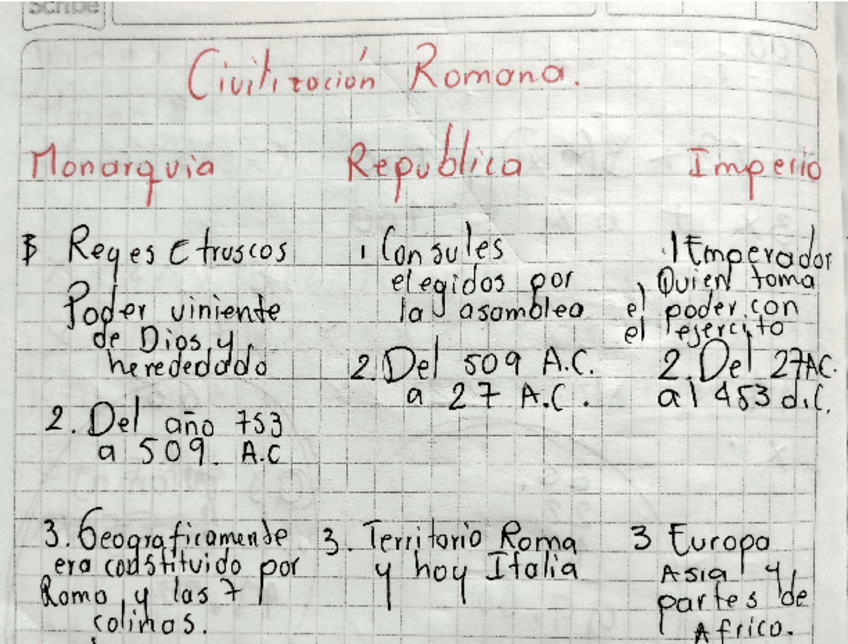 Scribe
Civilización Romana.
Monarquia
Reyes Etruscos
Poder viniente
de Dios y
herededado
2. Del año 753
a 509. A.C
3. Geograficamende
era codstituido por
Roma y las 7
colinas.
Republica
1 Consules
elegidos por
la asamblea
2. Del 509 A.C.
a 27 A.C.
3. Territorio Roma
y hoy Italia
Imperio
.1 Emperador
Quien toma
el poder con
el ejercito
2. Del 27 AC.
al 453 d.C.
3 Europa
Asia y
partes de
Africa.